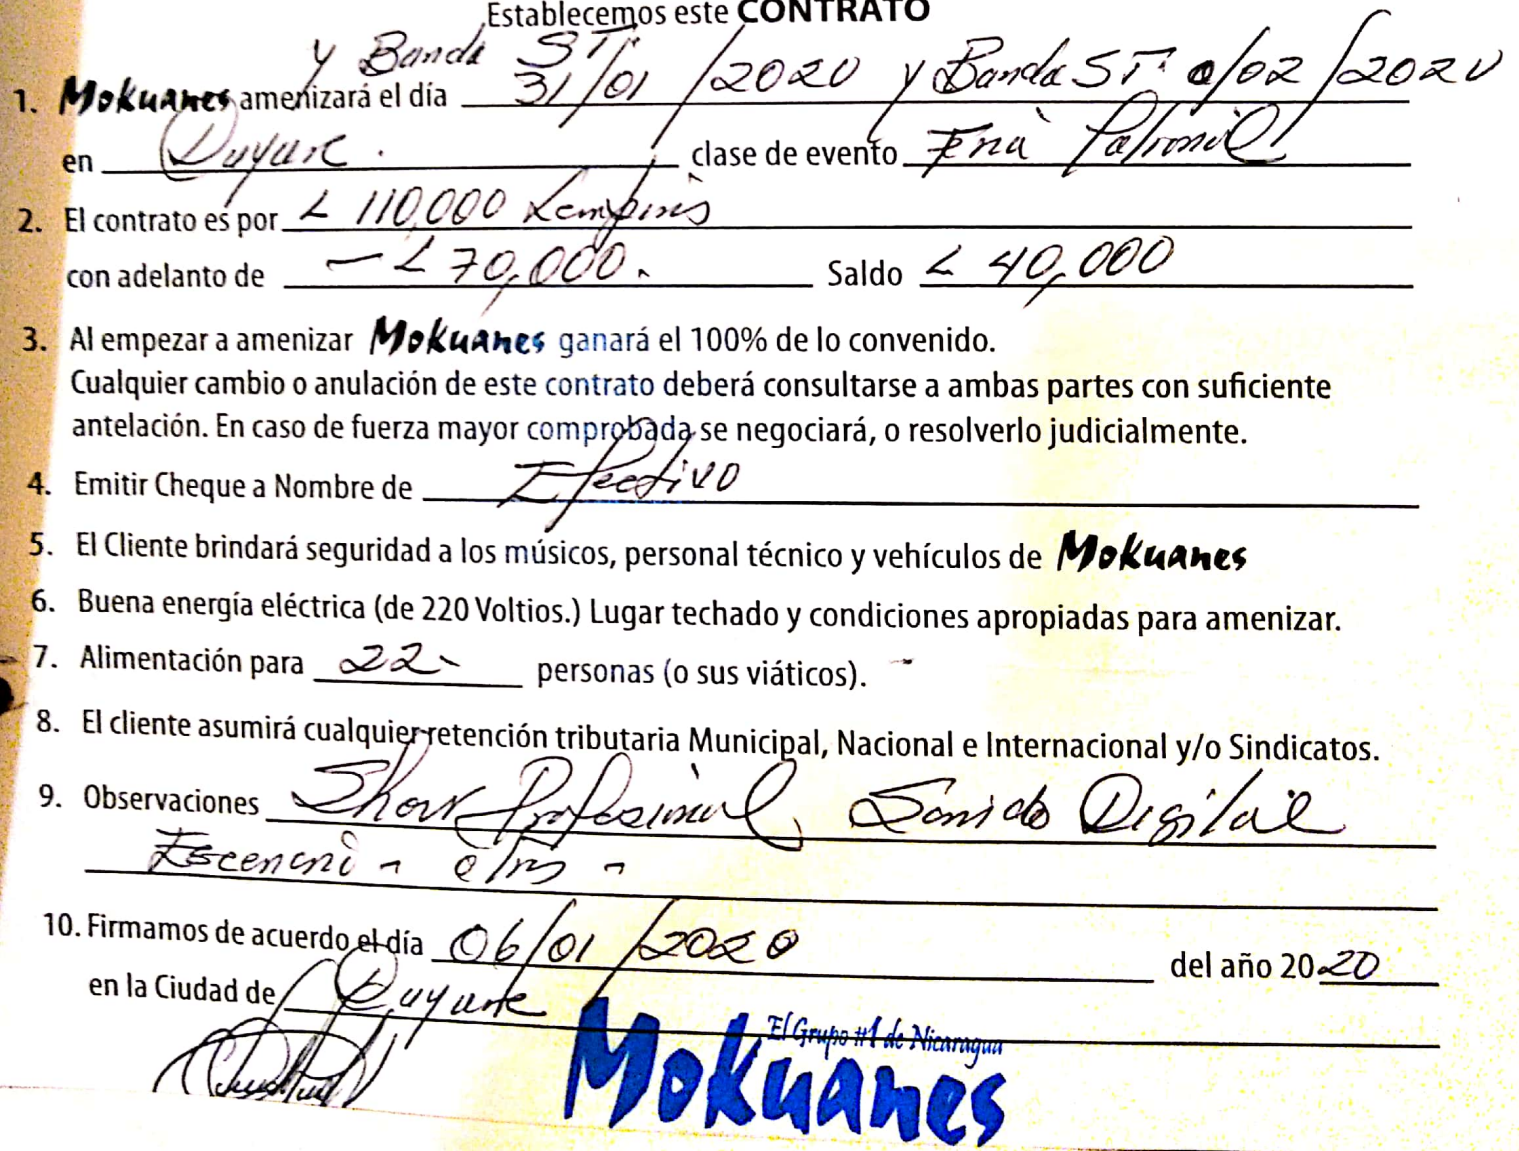 Establecemos este CONTRATO
y Banda ST.
1. Mokuanes amenizará el día 31/01/2020 y Banda ST. /02/2020
en Duyure. clase de evento Feria Patronal
2. El contrato es por L 110,000 Lempiras
con adelanto de - L 70,000. Saldo L 40,000
3. Al empezar a amenizar Mokuanes ganará el 100% de lo convenido.
Cualquier cambio o anulación de este contrato deberá consultarse a ambas partes con suficiente
antelación. En caso de fuerza mayor comprobada se negociará, o resolverlo judicialmente.
4. Emitir Cheque a Nombre de Efectivo
5. El Cliente brindará seguridad a los músicos, personal técnico y vehículos de Mokuanes
6. Buena energía eléctrica (de 220 Voltios.) Lugar techado y condiciones apropiadas para amenizar.
7. Alimentación para 22 personas (o sus viáticos).
8. El cliente asumirá cualquier retención tributaria Municipal, Nacional e Internacional y/o Sindicatos.
9. Observaciones Show Profesional, Sonido Digital
10. Firmamos de acuerdo el día 06/01/2020 del año 2020
en la Ciudad de Duyure
El Grupo #1 de Nicaragua
Mokuanes